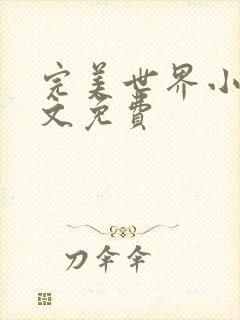 完美世界小
文免费
刀伞伞